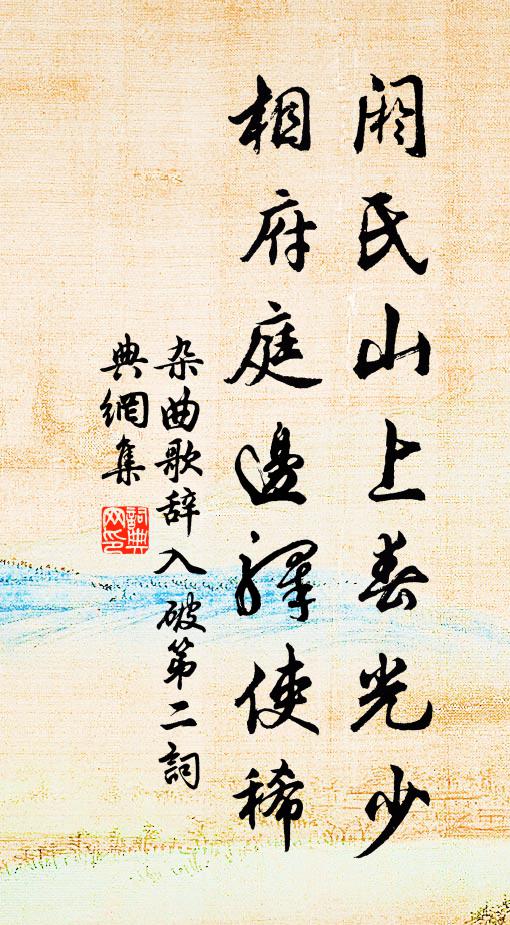 閼氏山上春光少
相府庭邊驛使稀
杂曲歌辞入破第二詞
典網集
詞典网印